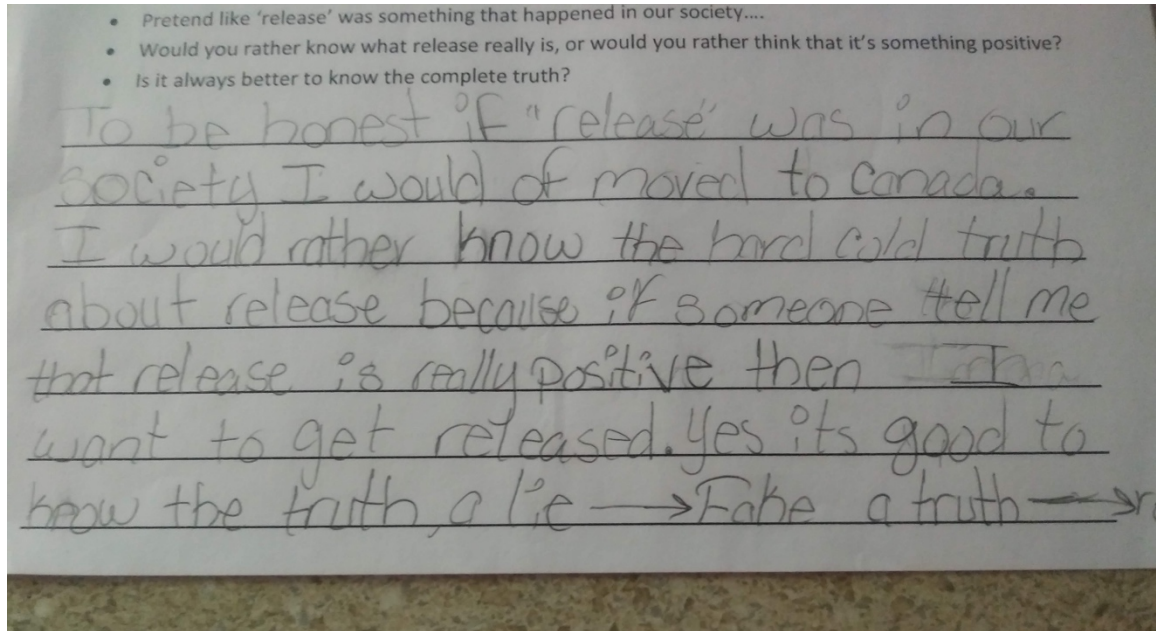 • Pretend like 'release' was something that happened in our society....
• Would you rather know what release really is, or would you rather think that it's something positive?
• Is it always better to know the complete truth?
To be honest if "release" was in our
society I would of moved to Canada.
I would rather know the hard cold truth
about release because if someone tell me
that release is really positive then I
want to get released. Yes its good to
know the truth, a lie → Fake a truth →